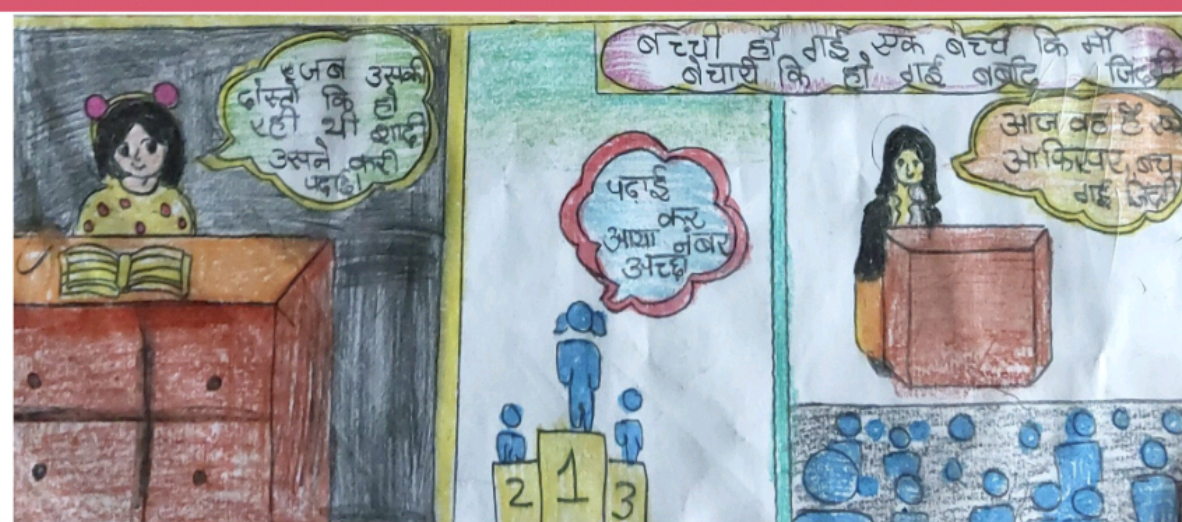 जब उसकी
दोस्तो कि हो
रही थी शादी
उसने करी
पढ़ाई
बच्ची हो गई एक बच्चे कि माँ
बेचारी कि हो गई बर्बाद जिंदगी
पढ़ाई
कर
आया नंबर
अच्छा
आज वह है
आफिसर, बच
गई जिंदगी
2 1 3